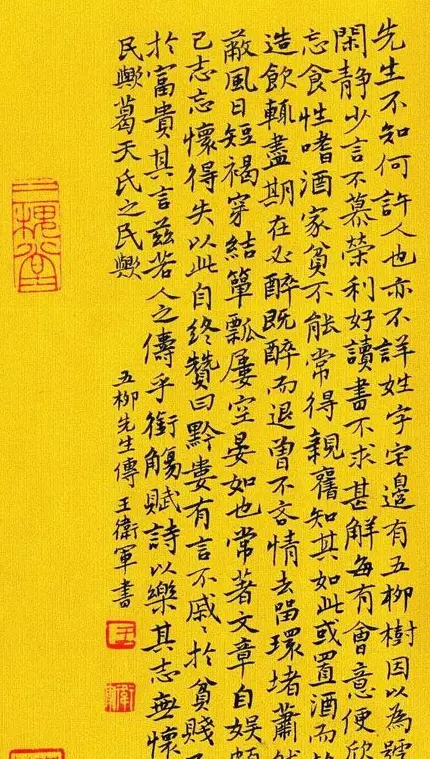 先生不知何許人也亦不詳姓字宅邊有五柳樹因以為號
閑靜少言不慕榮利好讀書不求甚解每有會意便欣
忘食性嗜酒家貧不能常得親舊知其如此或置酒而
造飲輒盡期在必醉既醉而退曾不吝情去留環堵蕭然
蔽風日短褐穿結簞瓢屢空晏如也常著文章自娛頗
己志忘懷得失以此自終贊曰黔婁有言不戚〻於貧賤不
於富貴其言茲若人之儔乎銜觴賦詩以樂其志無懷
民歟葛天氏之民歟
五柳先生傳 王衛軍書
王
三槐堂